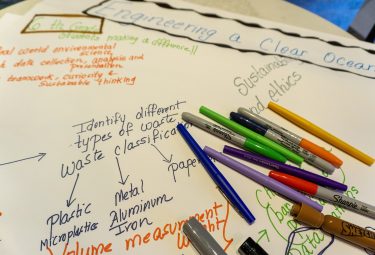 Engineering a Clear Ocean
Students making a difference!!
world environmental
science,
data collection, analysis and
presentation
teamwork, curiosity &
Sustainable thinking
Sustaina
and ethics
Identify different
types of waste
waste classificat
Plastic
Microplastics
Metal
Aluminum
Iron
paper
Volume measurement
Weight
Data
Sharpie